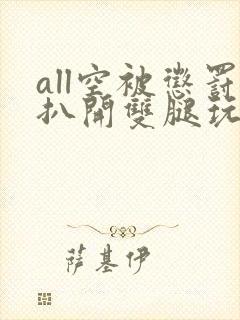 all空被懲罰
扒開雙腿玩
萨基伊